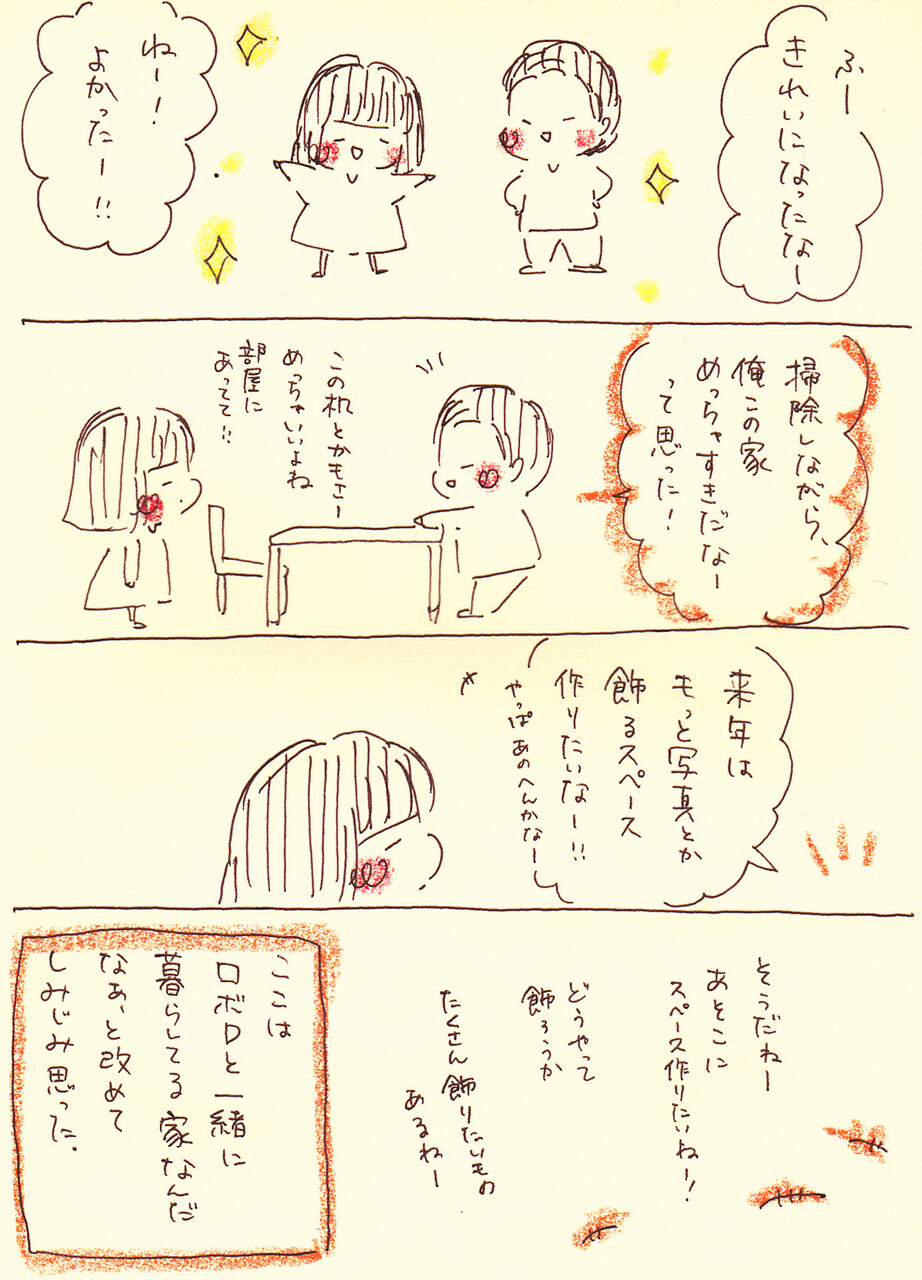 ふー
きれいになったなー
ねー！
よかったー！！
掃除しながら、
俺この家
めっちゃすきだなー
って思った！
この机とかもさー
めっちゃいいよね
部屋に
あってて！！
来年は
もっと写真とか
飾るスペース
作りたいなー！！
やっぱあのへんかなー
そうだねー
あそこに
スペース作りたいねー！
どうやって
飾ろうか
たくさん飾りたいもの
あるねー
ここは
ロボロと一緒に
暮らしてる家なんだ
なぁ、と改めて
しみじみ思った.